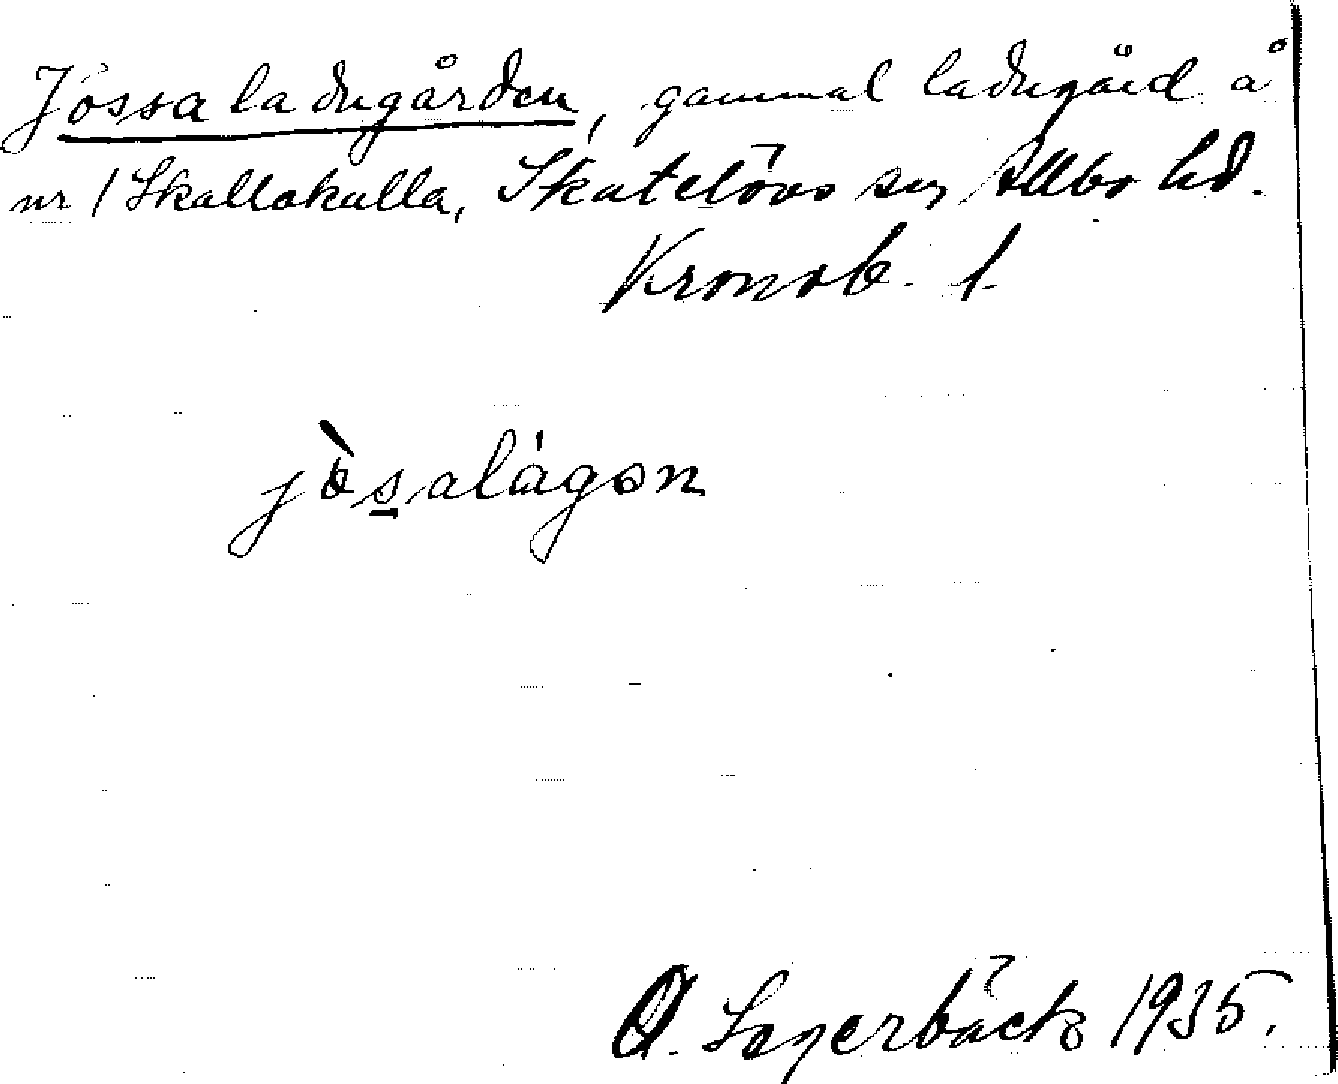 Jössa ladugården, gammal ladugård å
nr 1 Skallakulla, Skatelövs sn, Allbo hd.
Kronob. l.
jösalågon
O. Lagerbäck 1935.